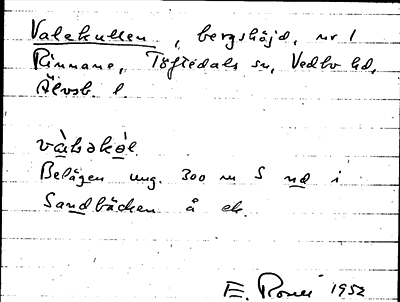 Valekullen, bergshöjd, nr 1
Rinnane, Töftedals sn, Vedbo hd,
Älvsb. l.
Belägen ung. 300 m S nd i
Sandbäcken å ek.
E. Rones 1952